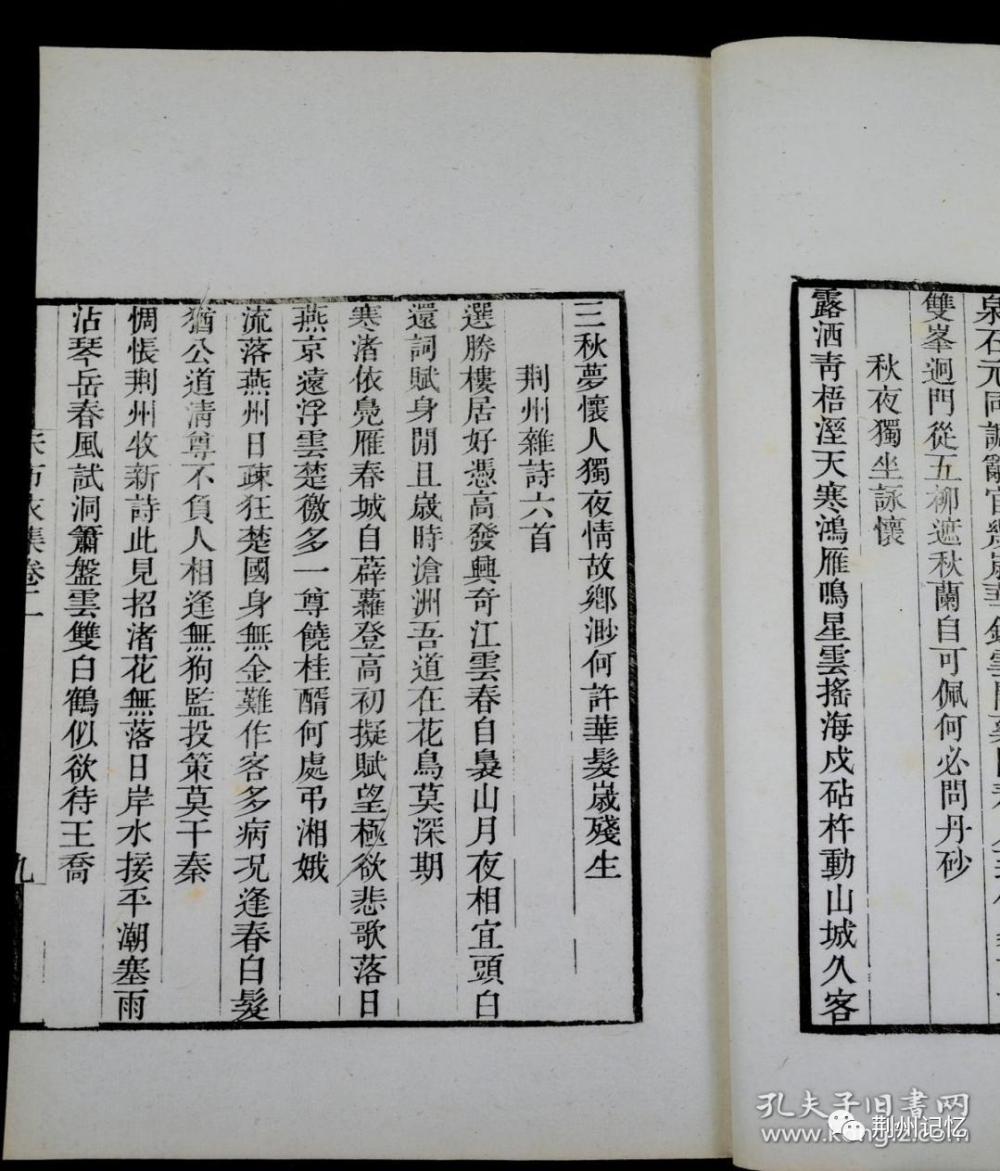 泉石元同調
雙峯迥門從五柳遮秋蘭自可佩何必問丹砂
秋夜獨坐詠懷
露洒青梧溼天寒鴻雁鳴星雲搖海戍砧杵動山城久客
三秋夢懷人獨夜情故鄉渺何許華髮歲殘生
荆州雜詩六首
選勝樓居好憑高發興奇江雲春自裊山月夜相宜頭白
還詞賦身閒且歲時滄洲吾道在花鳥莫深期
寒渚依鳧雁春城自薜蘿登高初擬賦望極欲悲歌落日
燕京遠浮雲楚徼多一尊饒桂醑何處弔湘娥
流落燕州日疎狂楚國身無金難作客多病況逢春白髮
猶公道淸尊不負人相逢無狗監投策莫干秦
惆悵荆州牧新詩此見招渚花無落日岸水接平潮塞雨
沾琴岳春風試洞簫盤雲雙白鶴似欲待王喬
布衣集卷二
九
孔夫子旧书网
荆州记忆